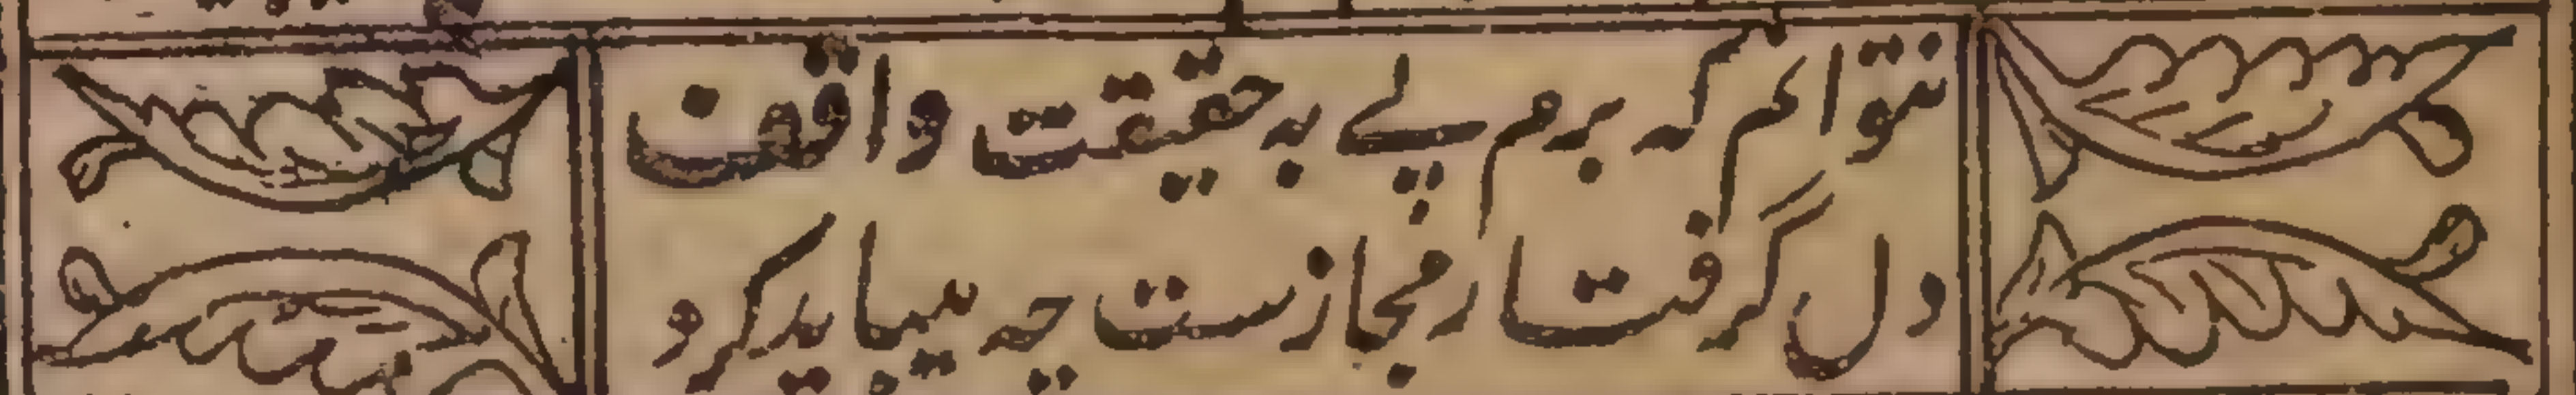 نتوانم که برم پے به حقیقت واقف
دل گرفتار مجازست چه میباید کرد